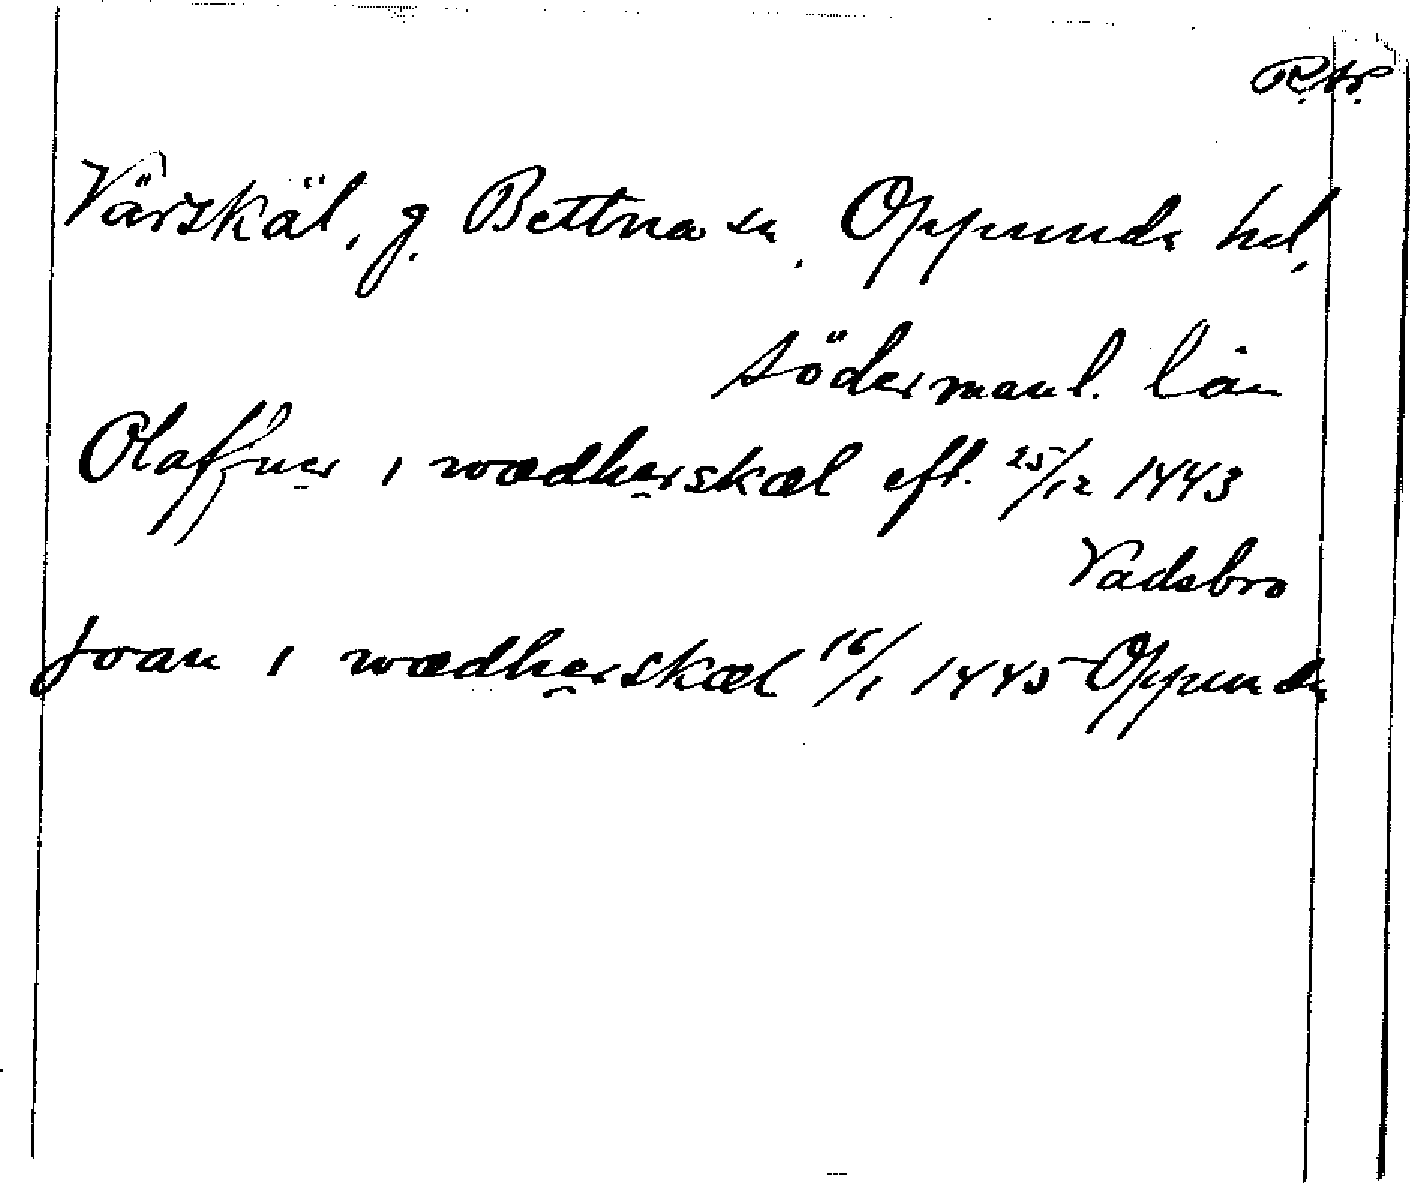 Värskäl, g. Bettna sn, Oppunda hd,
Södermanl. län
Olaffner i wædherskæl eft. 25/12 1443
Vadsbro
Joan i wædherskæl 16/1 1445 Oppunda